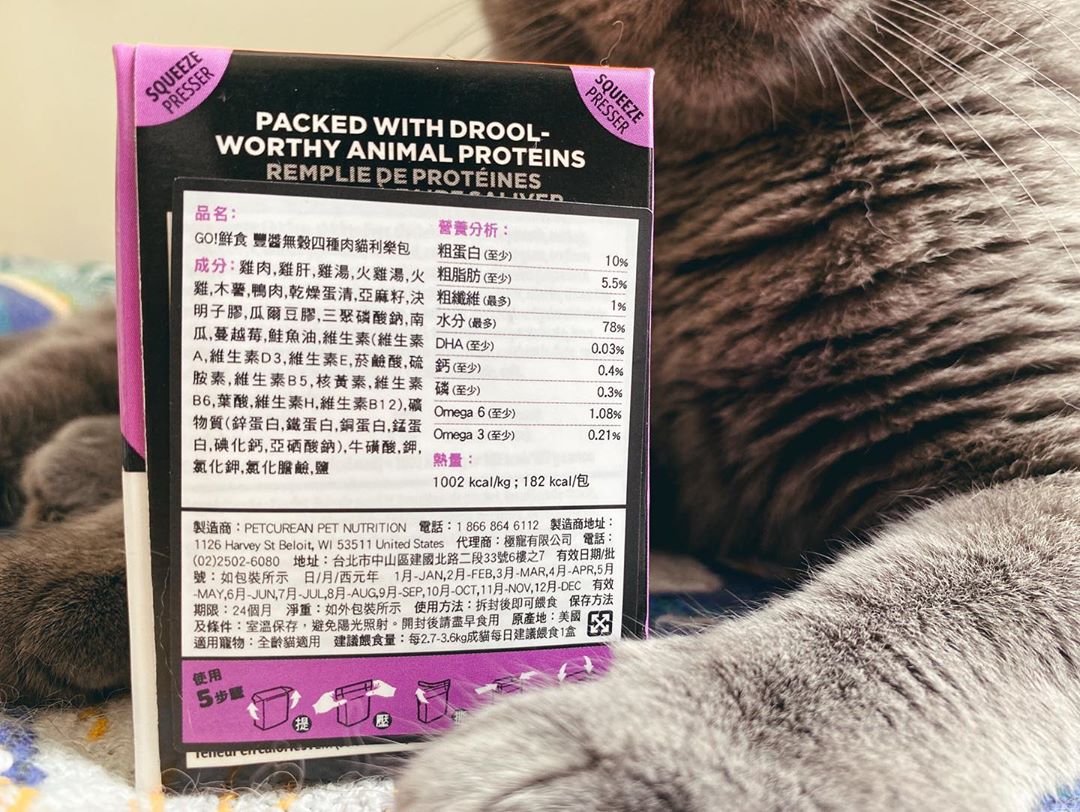 SQUEEZE
PRESSER
SQUEEZE
PRESSER
PACKED WITH DROOL-
WORTHY ANIMAL PROTEINS
REMPLIE DE PROTÉINES
品名：
GO!鮮食 豐醬無穀四種肉貓利樂包
成分：雞肉,雞肝,雞湯,火雞湯,火
雞,木薯,鴨肉,乾燥蛋清,亞麻籽,決
明子膠,瓜爾豆膠,三聚磷酸鈉,南
瓜,蔓越莓,鮭魚油,維生素(維生素
A,維生素D3,維生素E,菸鹼酸,硫
胺素,維生素B5,核黃素,維生素
B6,葉酸,維生素H,維生素B12),礦
物質(鋅蛋白,鐵蛋白,銅蛋白,錳蛋
白,碘化鈣,亞硒酸鈉),牛磺酸,鉀,
氯化鉀,氯化膽鹼,鹽
營養分析：
粗蛋白(至少) 10%
粗脂肪(至少) 5.5%
粗纖維(最多) 1%
水分(最多) 78%
DHA(至少) 0.03%
鈣(至少) 0.4%
磷(至少) 0.3%
Omega 6(至少) 1.08%
Omega 3(至少) 0.21%
熱量：
1002 kcal/kg；182 kcal/包
製造商：PETCUREAN PET NUTRITION 電話：1 866 864 6112 製造商地址：
1126 Harvey St Beloit, WI 53511 United States 代理商：極寵有限公司 電話：
(02)2502-6080 地址：台北市中山區建國北路二段33號6樓之7 有效日期/批
號：如包裝所示 日/月/西元年 1月-JAN,2月-FEB,3月-MAR,4月-APR,5月
-MAY,6月-JUN,7月-JUL,8月-AUG,9月-SEP,10月-OCT,11月-NOV,12月-DEC 有效
期限：24個月 淨重：如外包裝所示 使用方法：拆封後即可餵食 保存方法
及條件：室溫保存，避免陽光照射。開封後請盡早食用 原產地：美國
適用寵物：全齡貓適用 建議餵食量：每2.7-3.6kg成貓每日建議餵食1盒
使用
5步驟
提
壓